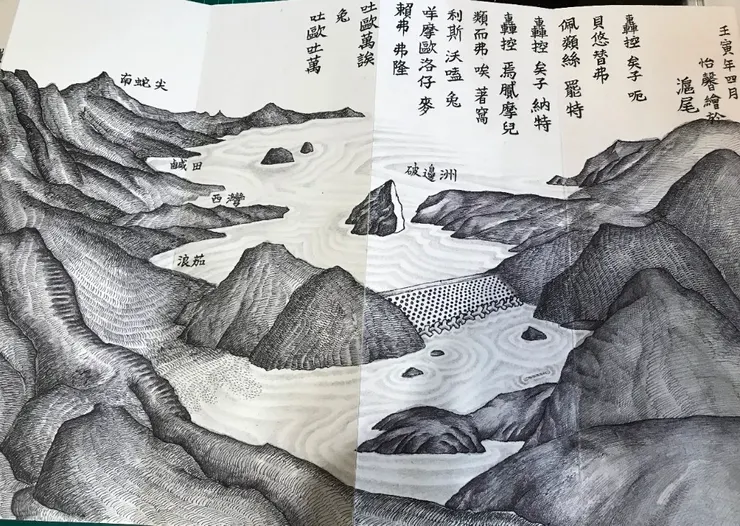 壬寅年四月
怡馨繪於
滬尾
轟控 矣子 呃
貝悠替弗
佩類絲 罷特
轟控 矣子 納特
轟控 焉膩摩兒
類而弗 唉 著窩
利斯 沃嗑 兔
咩摩歐洛仔 麥
賴弗 弗隆
吐歐萬誒
兔
吐歐吐萬
南蛇尖
鹹田
西灣
浪茄
破邊洲